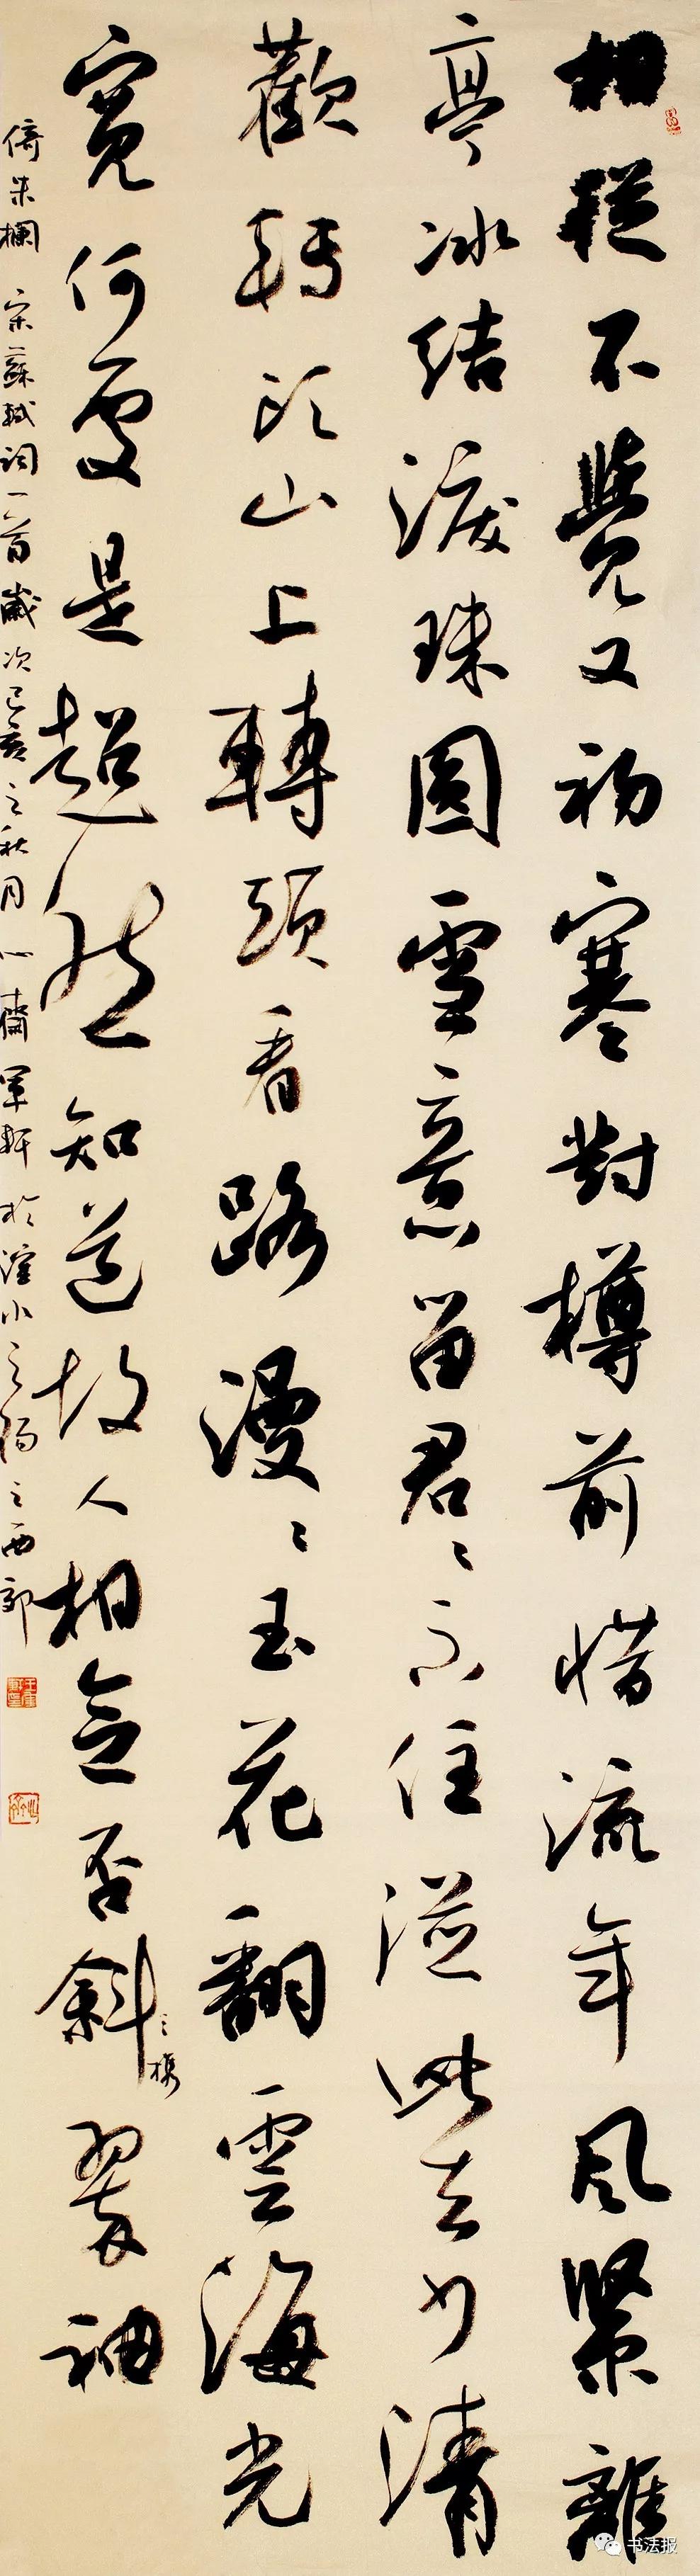 相從不覺又初寒對樽前惜流年風緊離
亭冰結淚珠圓雪意留君〻不住從此去少清
歡轉頭山上轉頭看路漫〻玉花翻雲海光
寬何處是超然知道故人相念否斜翠袖
携
倚朱欄 宋蘇軾詞一首歲次己亥之秋月心齋軍軒於之陽之西
书法报